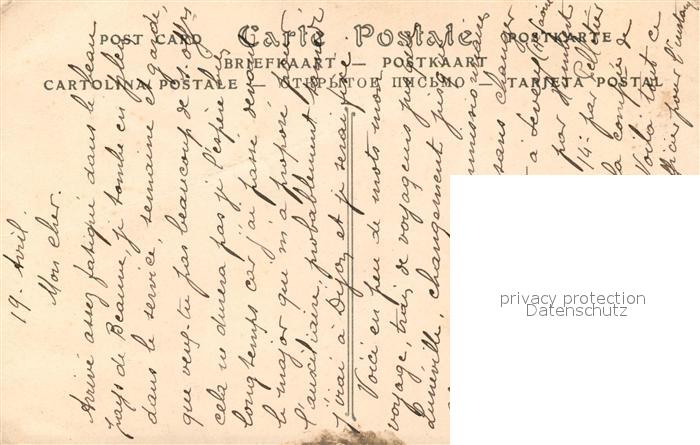 POST CARD Carte Postale POSTKARTE
BRIEFKAART — POSTKAART
CARTOLINA POSTALE — ОТКРЫТОЕ ПИСЬМО — TARJETA POSTAL
19. Avril.
Mon cher.
Arrivé assez fatigué dans le beau
pays de Beaune, je tombe en plein
dans le service, semaine et garde,
que veux-tu pas beaucoup de
cela ne durera pas je l'espère bien
longtemps car j'ai passé devant
le major que m'a proposé pour
l'auxiliaire, probablement
j'irai à Dijon et je serai fixé
Voici en peu de mots mon
voyage, train de voyageurs jusque
Lunéville, changement jusq
sans changer
à
par
14. par Pelletier
la comp^ie de
Voilà tout ce
pour
privacy protection
Datenschutz